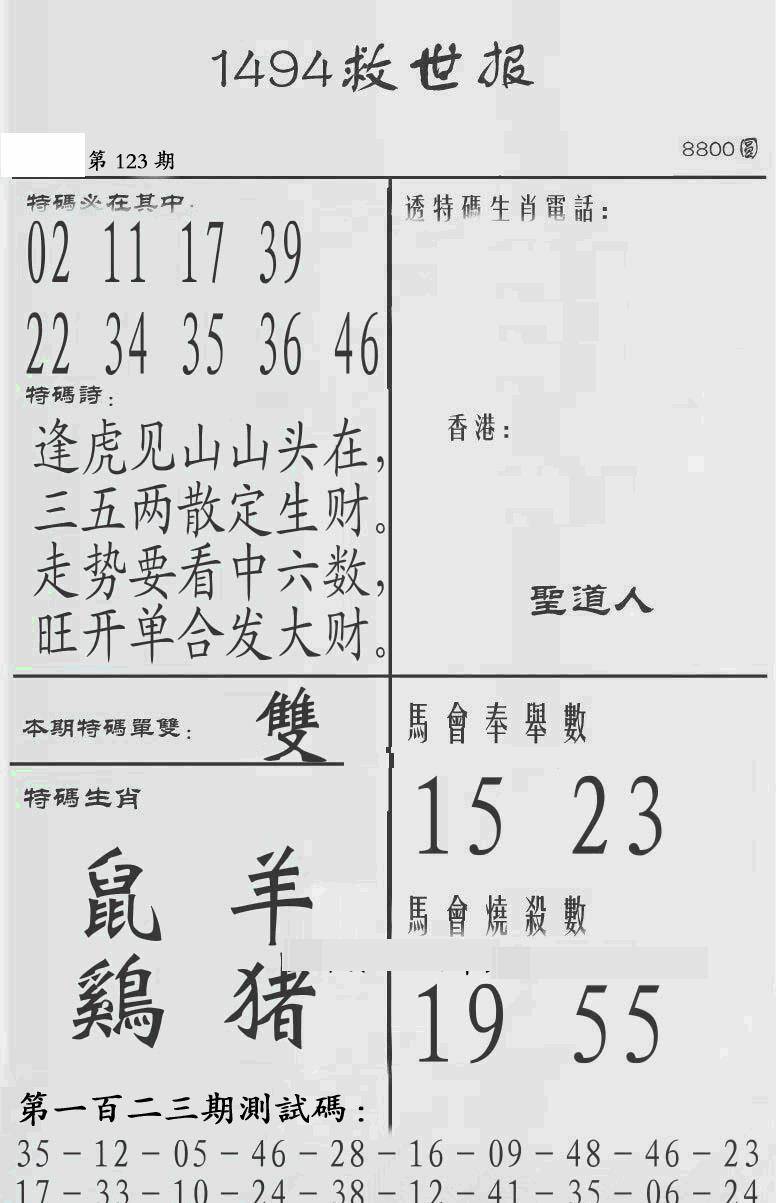 1494救世报
第 123 期
8800圓
特碼必在其中:
02 11 17 39
22 34 35 36 46
特碼詩:
逢虎见山山头在,
三五两散定生财。
走势要看中六数,
旺开单合发大财。
透特碼生肖電話:
香港:
聖道人
本期特碼單雙: 雙
特碼生肖
鼠 羊
鷄 猪
馬會奉舉數
15 23
馬會燒殺數
19 55
第一百二三期測試碼:
35－12－05－46－28－16－09－48－46－23
17－33－10－24－38－12－41－35－06－24